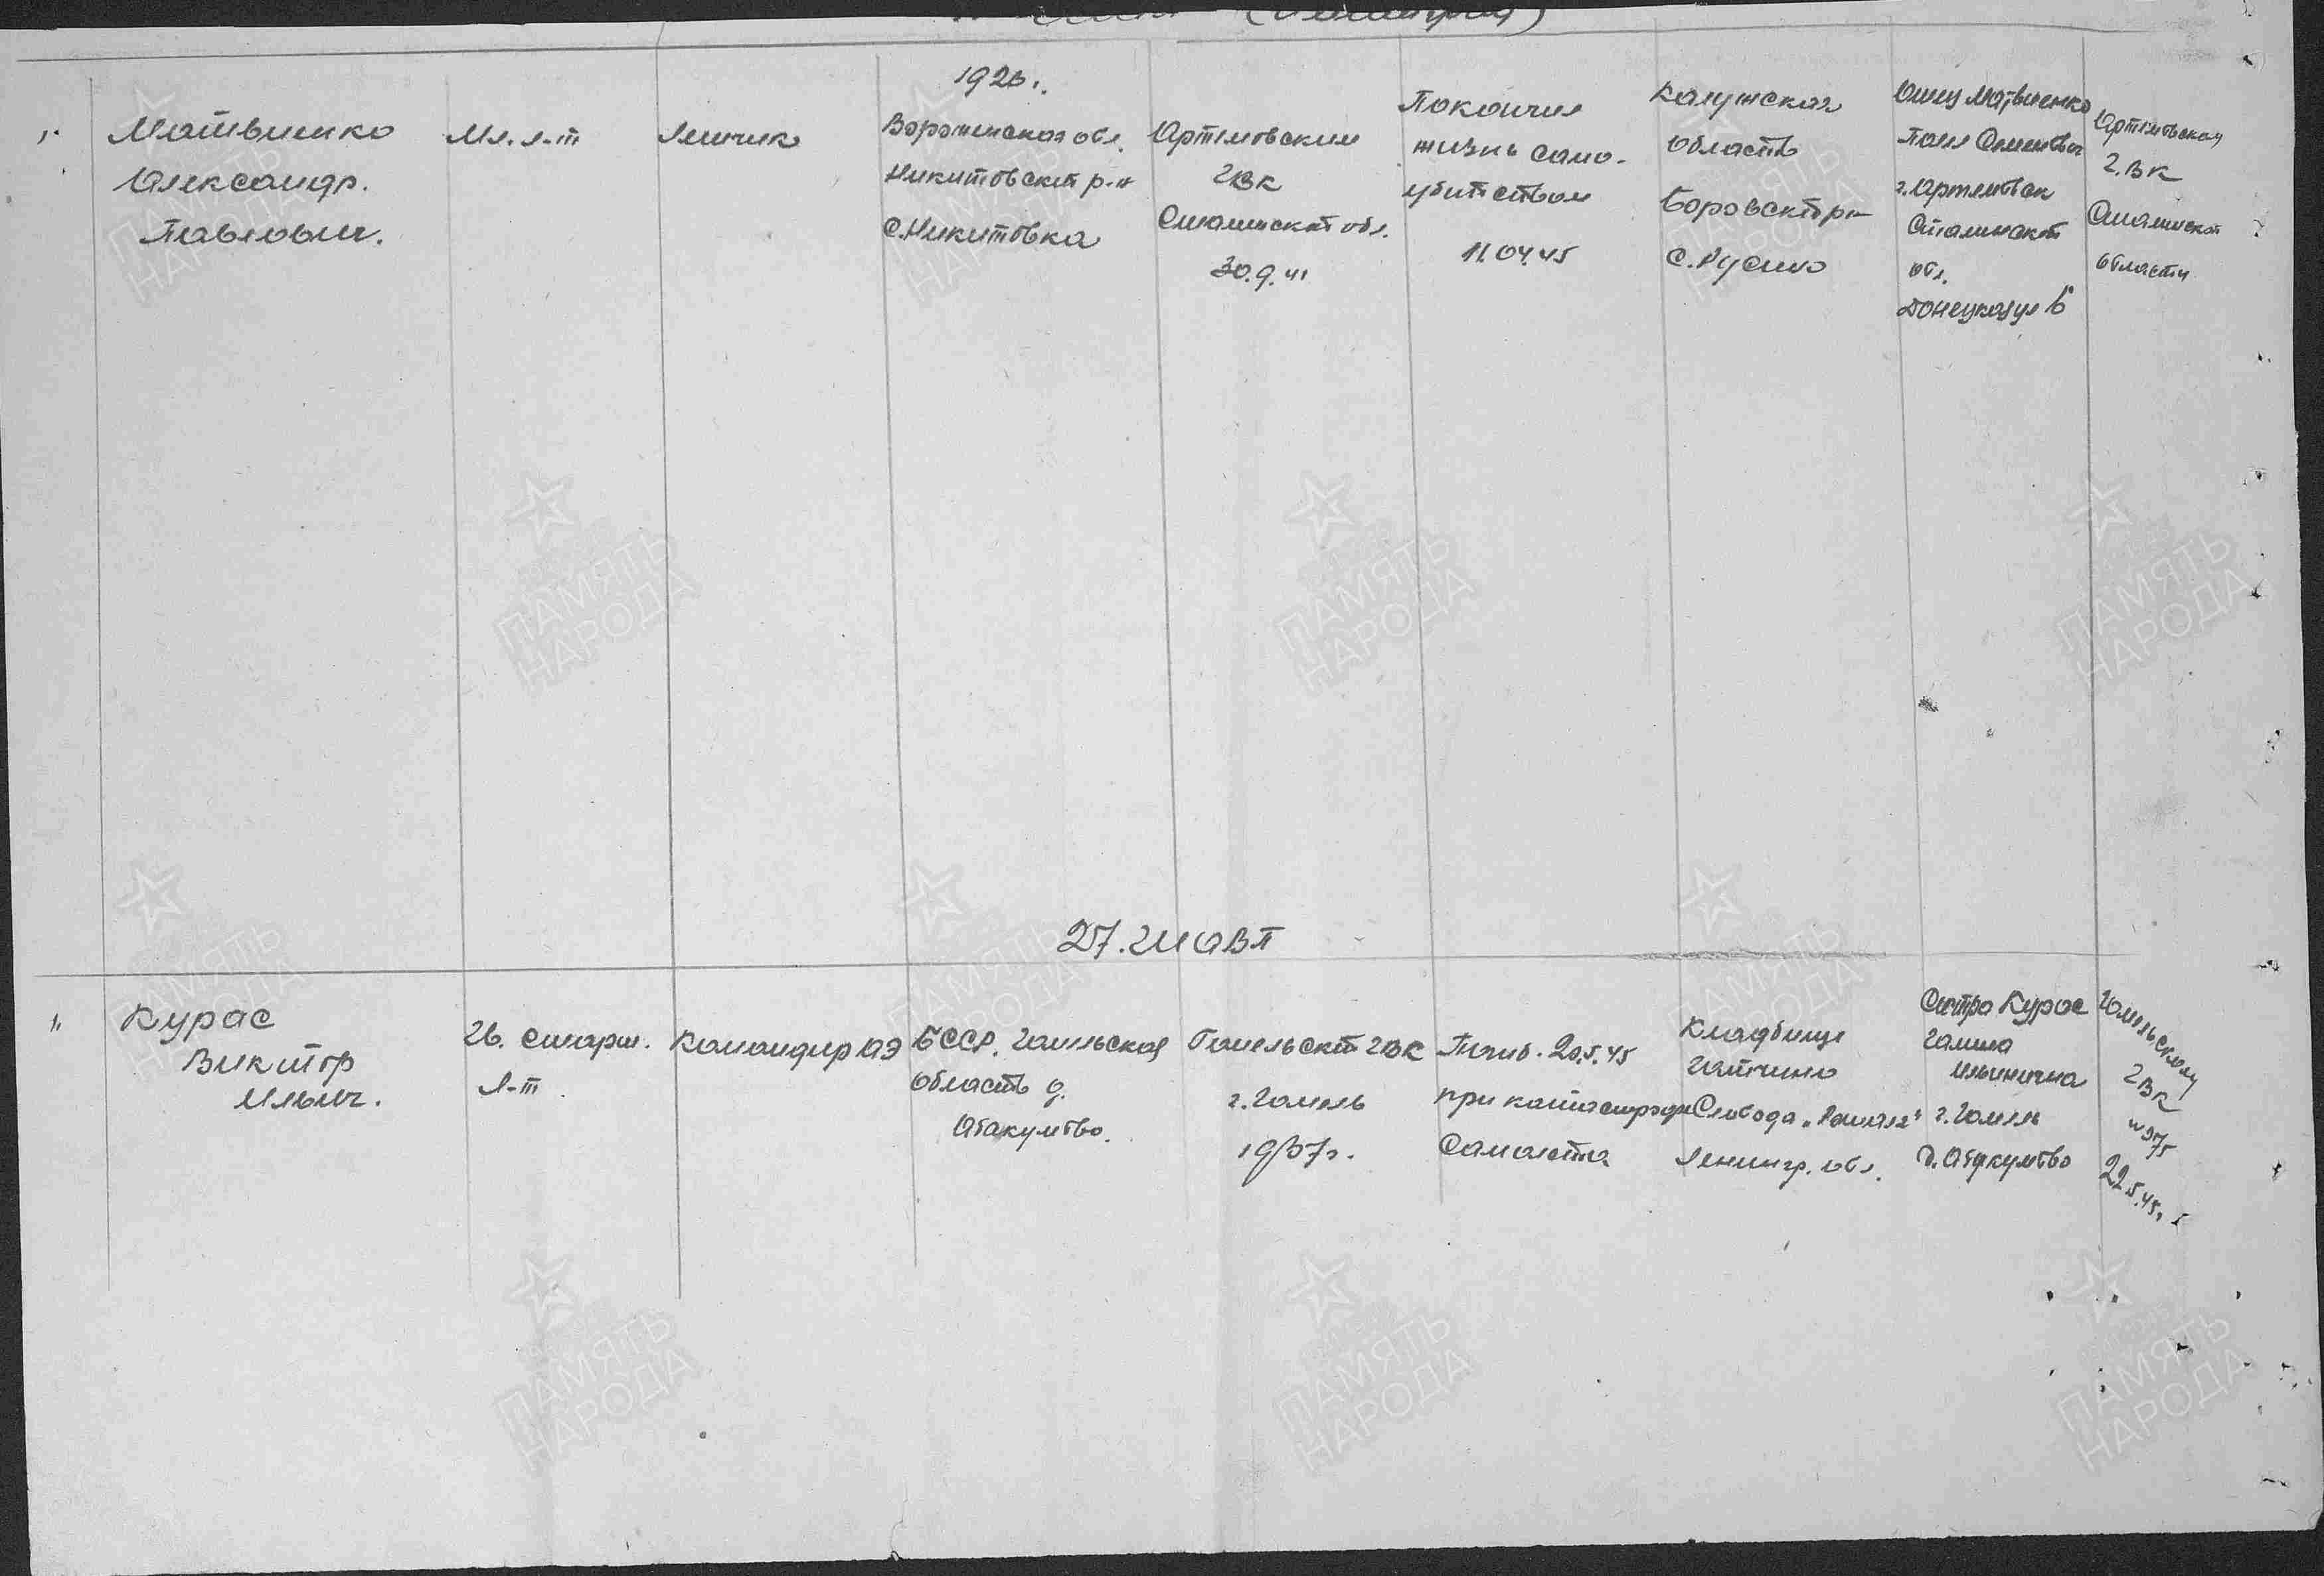 1.
Матвиенко
Александр.
Павлович.
Мл. л-т
Летчик
1923 г.
Воронежская обл.
Никитовский р-н
С. Никитовка
Артемовским
ГВК
Сталинской обл.
30.9.41
Покончил
жизнь само-
убийством
11.04.45
Калужская
область
Боровский р-н
С. Русино
Отец Матвиенко
Павел Семенович
г. Артемовск
Сталинской
обл.
Донецкая ул 6
Артемовский
Г.ВК
Сталинской
области
27. ГИАВП
1.
Курас
Виктор
Ильич.
Гв. старш.
л-т
Командир АЭ
БССР. Гомельская
область д.
Абакумово.
Гомельский ГВК
г. Гомель
1937 г.
Погиб. 20.5.45
при катастрофе
Самолета
Кладбище
Гатчино
Слобода
Ленингр. обл.
Сестра Курас
Галина
Ильинична
г. Гомель
д. Абакумово
Гомельскому
ГВК
№ 975
22.5.45 г.
ПАМЯТЬ
НАРОДА